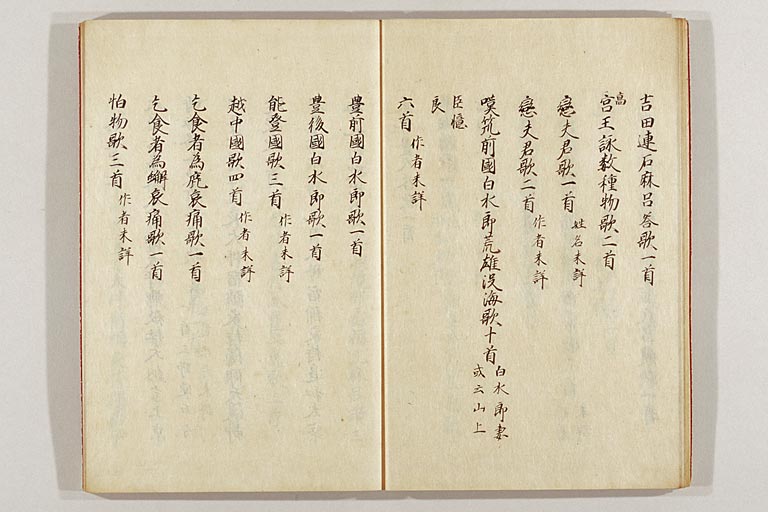 吉田連石麻呂答歌一首
高宮王詠数種物歌二首
戀夫君歌一首 姓名未詳
戀夫君歌二首 作者未詳
嘆筑前國白水郎荒雄没海歌十首 白水郎妻
或云山上
臣憶
良
六首 作者未詳
豊前國白水郎歌一首
豊後國白水郎歌一首
能登國歌三首 作者未詳
越中國歌四首 作者未詳
乞食者為鹿哀痛歌一首
乞食者為蟹哀痛歌一首
怕物歌三首 作者未詳